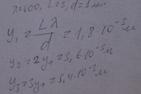 λ=600, L=3, d=1мм
y₁ = Lλ/d = 1,8·10⁻³м
y₂ = 2y₁ = 3,6·10⁻³м
y₃ = 3y₁ = 5,4·10⁻³м